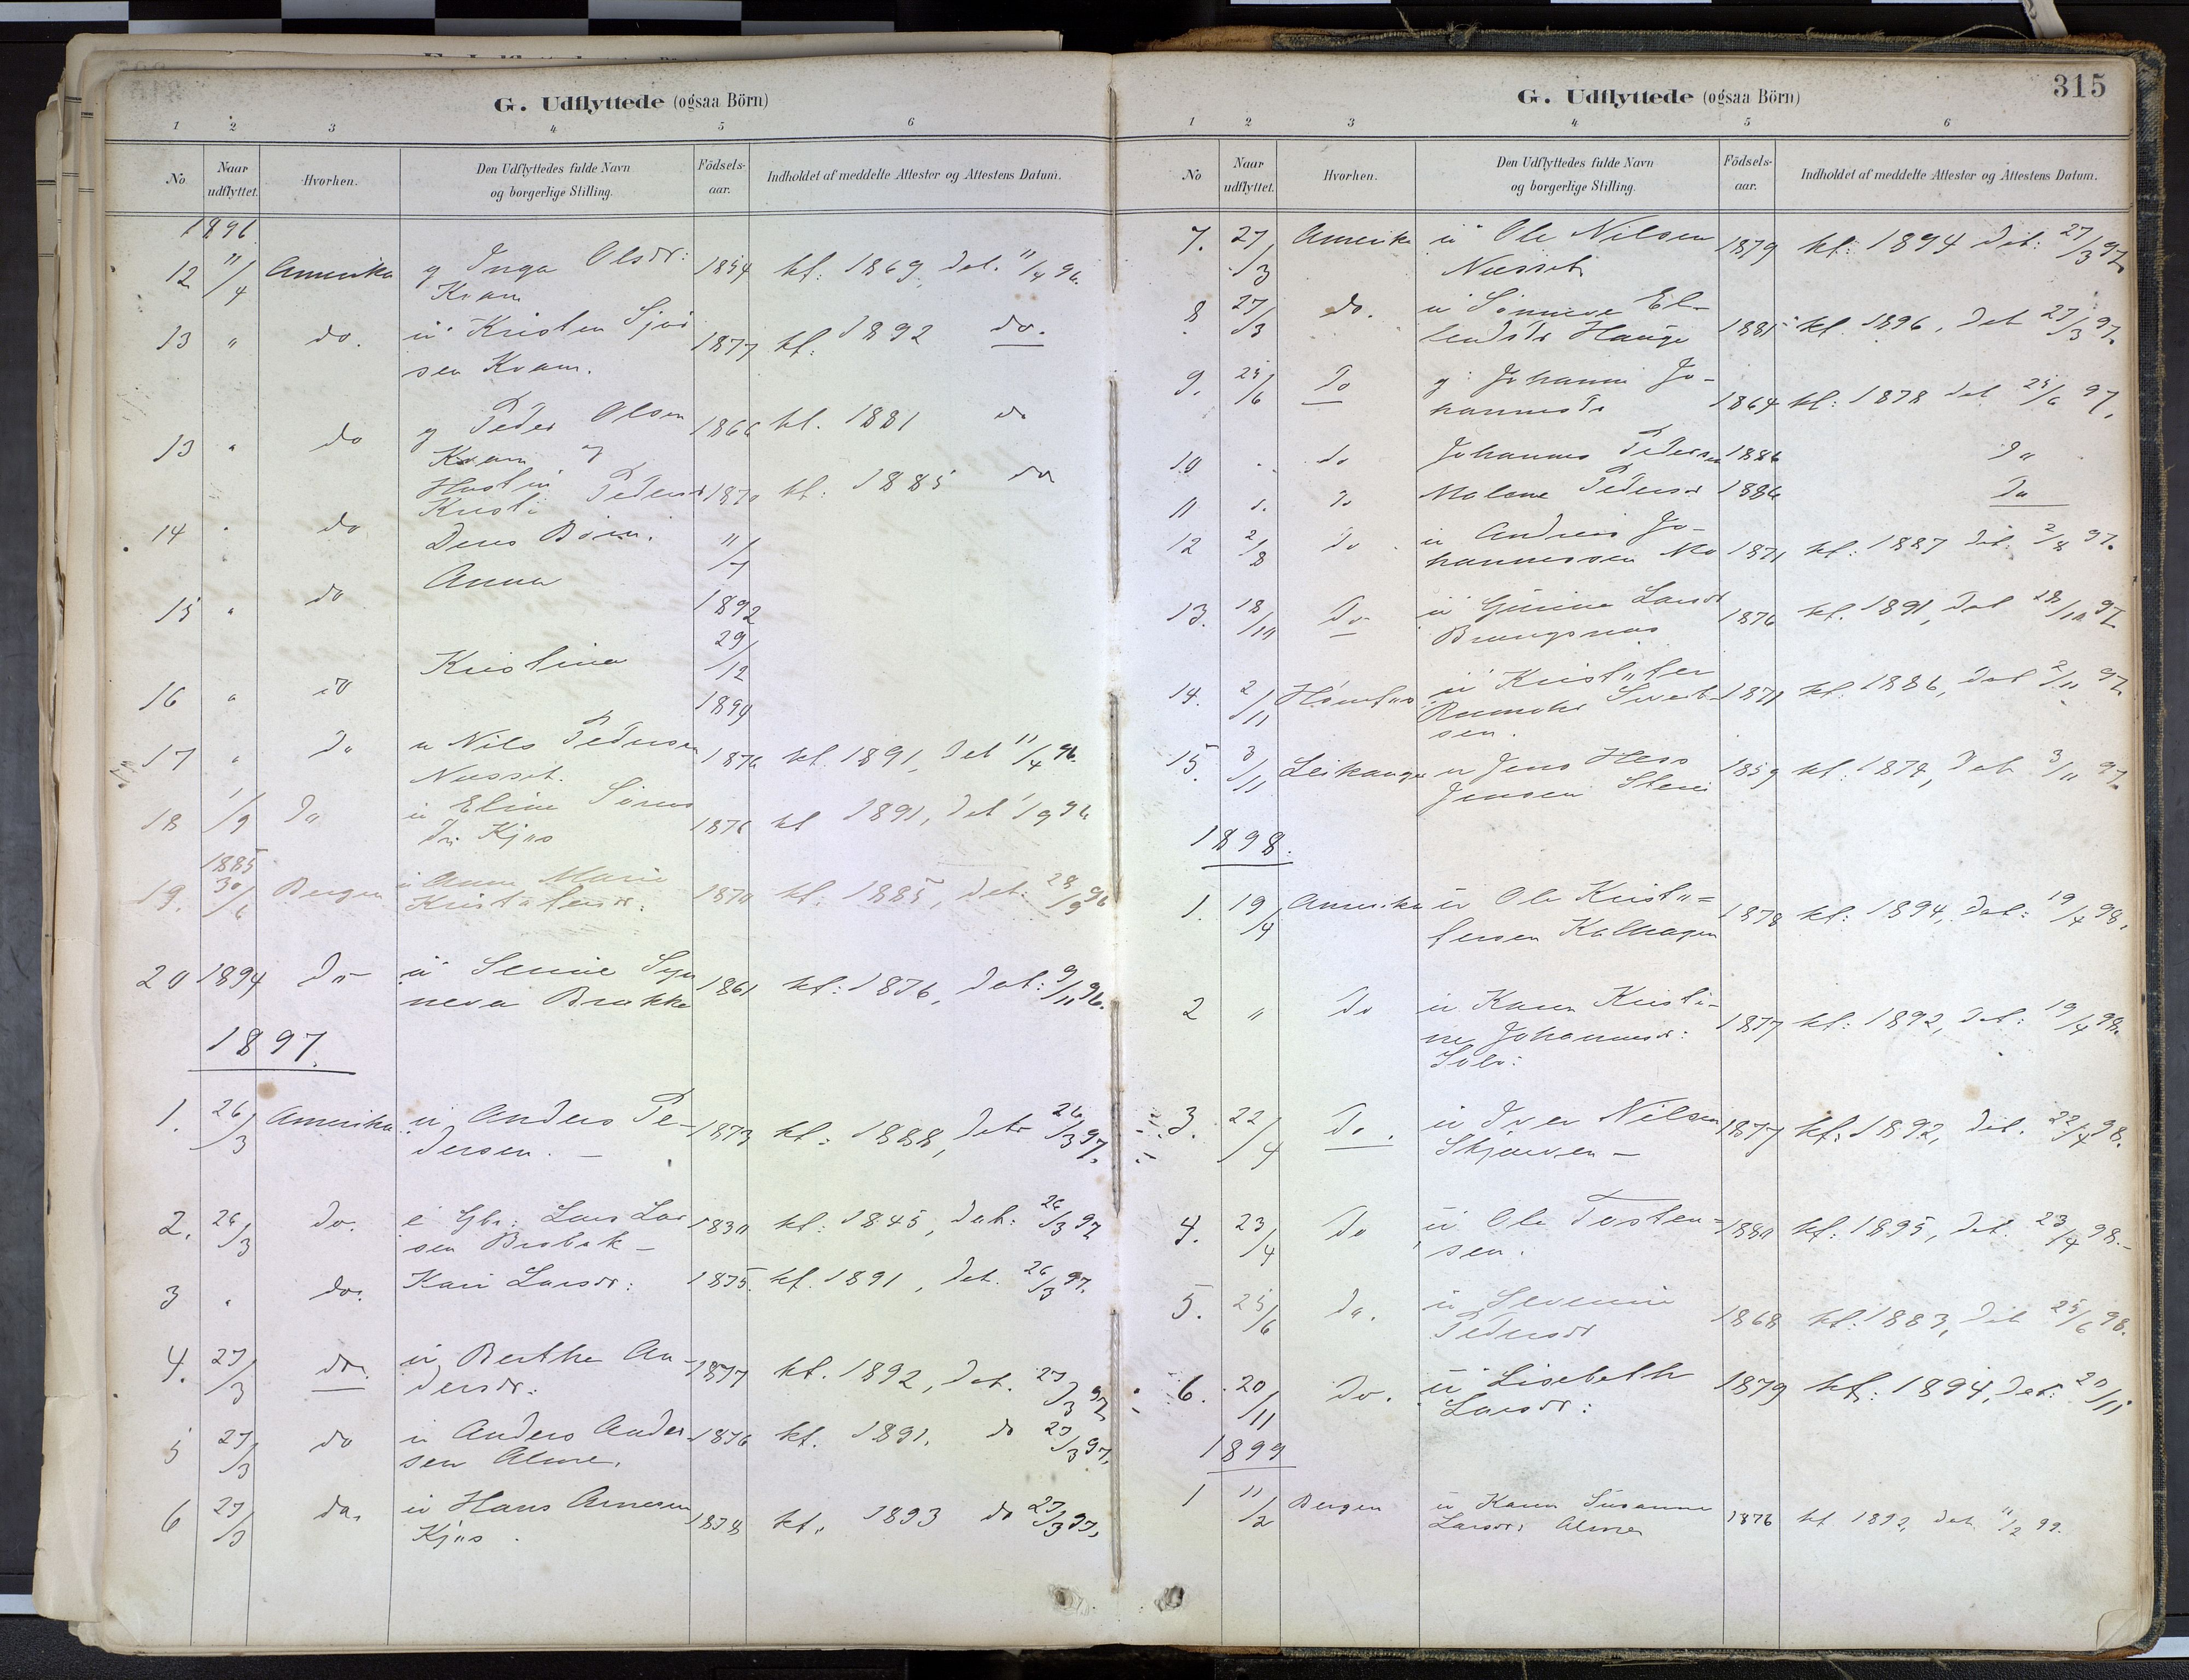 G. Udflyttede (ogsaa Börn)
1 2 3 4 5 6
No Naar udflyttet. Hvorhen. Den Udflyttedes fulde Navn og borgerlige Stilling. Födsels-aar. Indholdet af meddelte Attester og Attestens Datum.
1896
12 11/4 Amerika g Inga Olsdr: 1854 kf: 1869, dat. 11/4 96.
Kvam
13 " do. ü Kristen 1877 kf: 1892 do.
sen Kvam.
13 " do g Peder Olsen 1866 kf. 1881 do
Kvam og
Hustru
Kristi Pedersd 1870 kf: 1885 do
14 " do Deres Börn: 11/1
15 " do Anna 1892
29/12
16 " do Kristina 1894
17 " do u Nils Pedersen 1876 kf. 1891, dat 11/4 96.
18 1/9 do ü Eline 1876 kf 1891, dat 1/9 96
1885
19. 30/6 Bergen ü Anne Marie 1870 kf: 1885, dat: 28/9 96
20 1894 do ü 1861 kf: 1876, dat: 9/11 96.
1897.
1. 26/3 Amerika ü Anders Pe- 1873 kf: 1888, dat 26/3 97.
dersen. –
2. 26/3 do. e Gbr: Lars Lar 1830 kf: 1845, dat: 26/3 97
sen
3 " do. Kari Larsdr: 1875. kf. 1891, dat. 26/3 97.
4. 27/3 do. ü Berthe An- 1877 kf. 1892, dat. 27/3 97
dersdr:
5 27/3 do ü Anders Ander- 1876 kf. 1891. do 27/3 97.
sen Alme.
6 27/3 do. ü Hans Arnesen 1878 kf. 1893 do 27/3 97.
Kjøs.
315
G. Udflyttede (ogsaa Börn)
1 2 3 4 5 6
No Naar udflyttet. Hvorhen. Den Udflyttedes fulde Navn og borgerlige Stilling. Födsels-aar. Indholdet af meddelte Attester og Attestens Datum.
7. 27/3 Amerika ü Ole Nilsen 1879 kf: 1894 dat: 27/3 97.
8 27/3 do. ü Sönneve El- 1881 kf. 1896, dat 27/3 97.
lendsdr Hauge
9. 25/6 Do g Johanne Jo- 1864 kf: 1878 dat 25/6 97.
hannesdr
10 " do Johannes Pedersen 1886 do
11 do Malene Pedersd 1886 do
12 2/8 do ü Andreas Jo- 1871 kf: 1887 dat: 2/8 97.
hannessen Mo
13. 18/10 Do ü Larsdr 1876 kf. 1891, dat 18/10 97.
14. 2/11 ü Kristofer 1871 kf. 1886, dat 2/11 97.
sen.
15. 3/11 Leikanger u Jens Hess 1859 kf: 1874, dat 3/11 97.
Jensen
1898.
1. 19/4 Amerika ü Ole Kristo= 1878 kf: 1894, dat: 19/4 98.
fersen
2 " do ü Karen Kristi- 1877 kf: 1892, dat: 19/4 98.
ne Johannesd:
3. 22/4 Do. ü Iver Nilsen 1877 kf: 1892, dat. 22/4 98.
4. 23/4 Do ü Ole Tosten= 1880 kf: 1895, dat. 23/4 98.–
sen.
5. 25/6 do. ü Severine 1868 kf: 1883, dat 25/6 98.
Pedersdr
6. 20/11 do. ü Lisebeth 1879 kf: 1894, dat: 20/11
Larsdr:
1899
1 11/2 Bergen ü Karen Susanne 1876 kf 1892, dat 11/2 99.
Larsdr: Alme